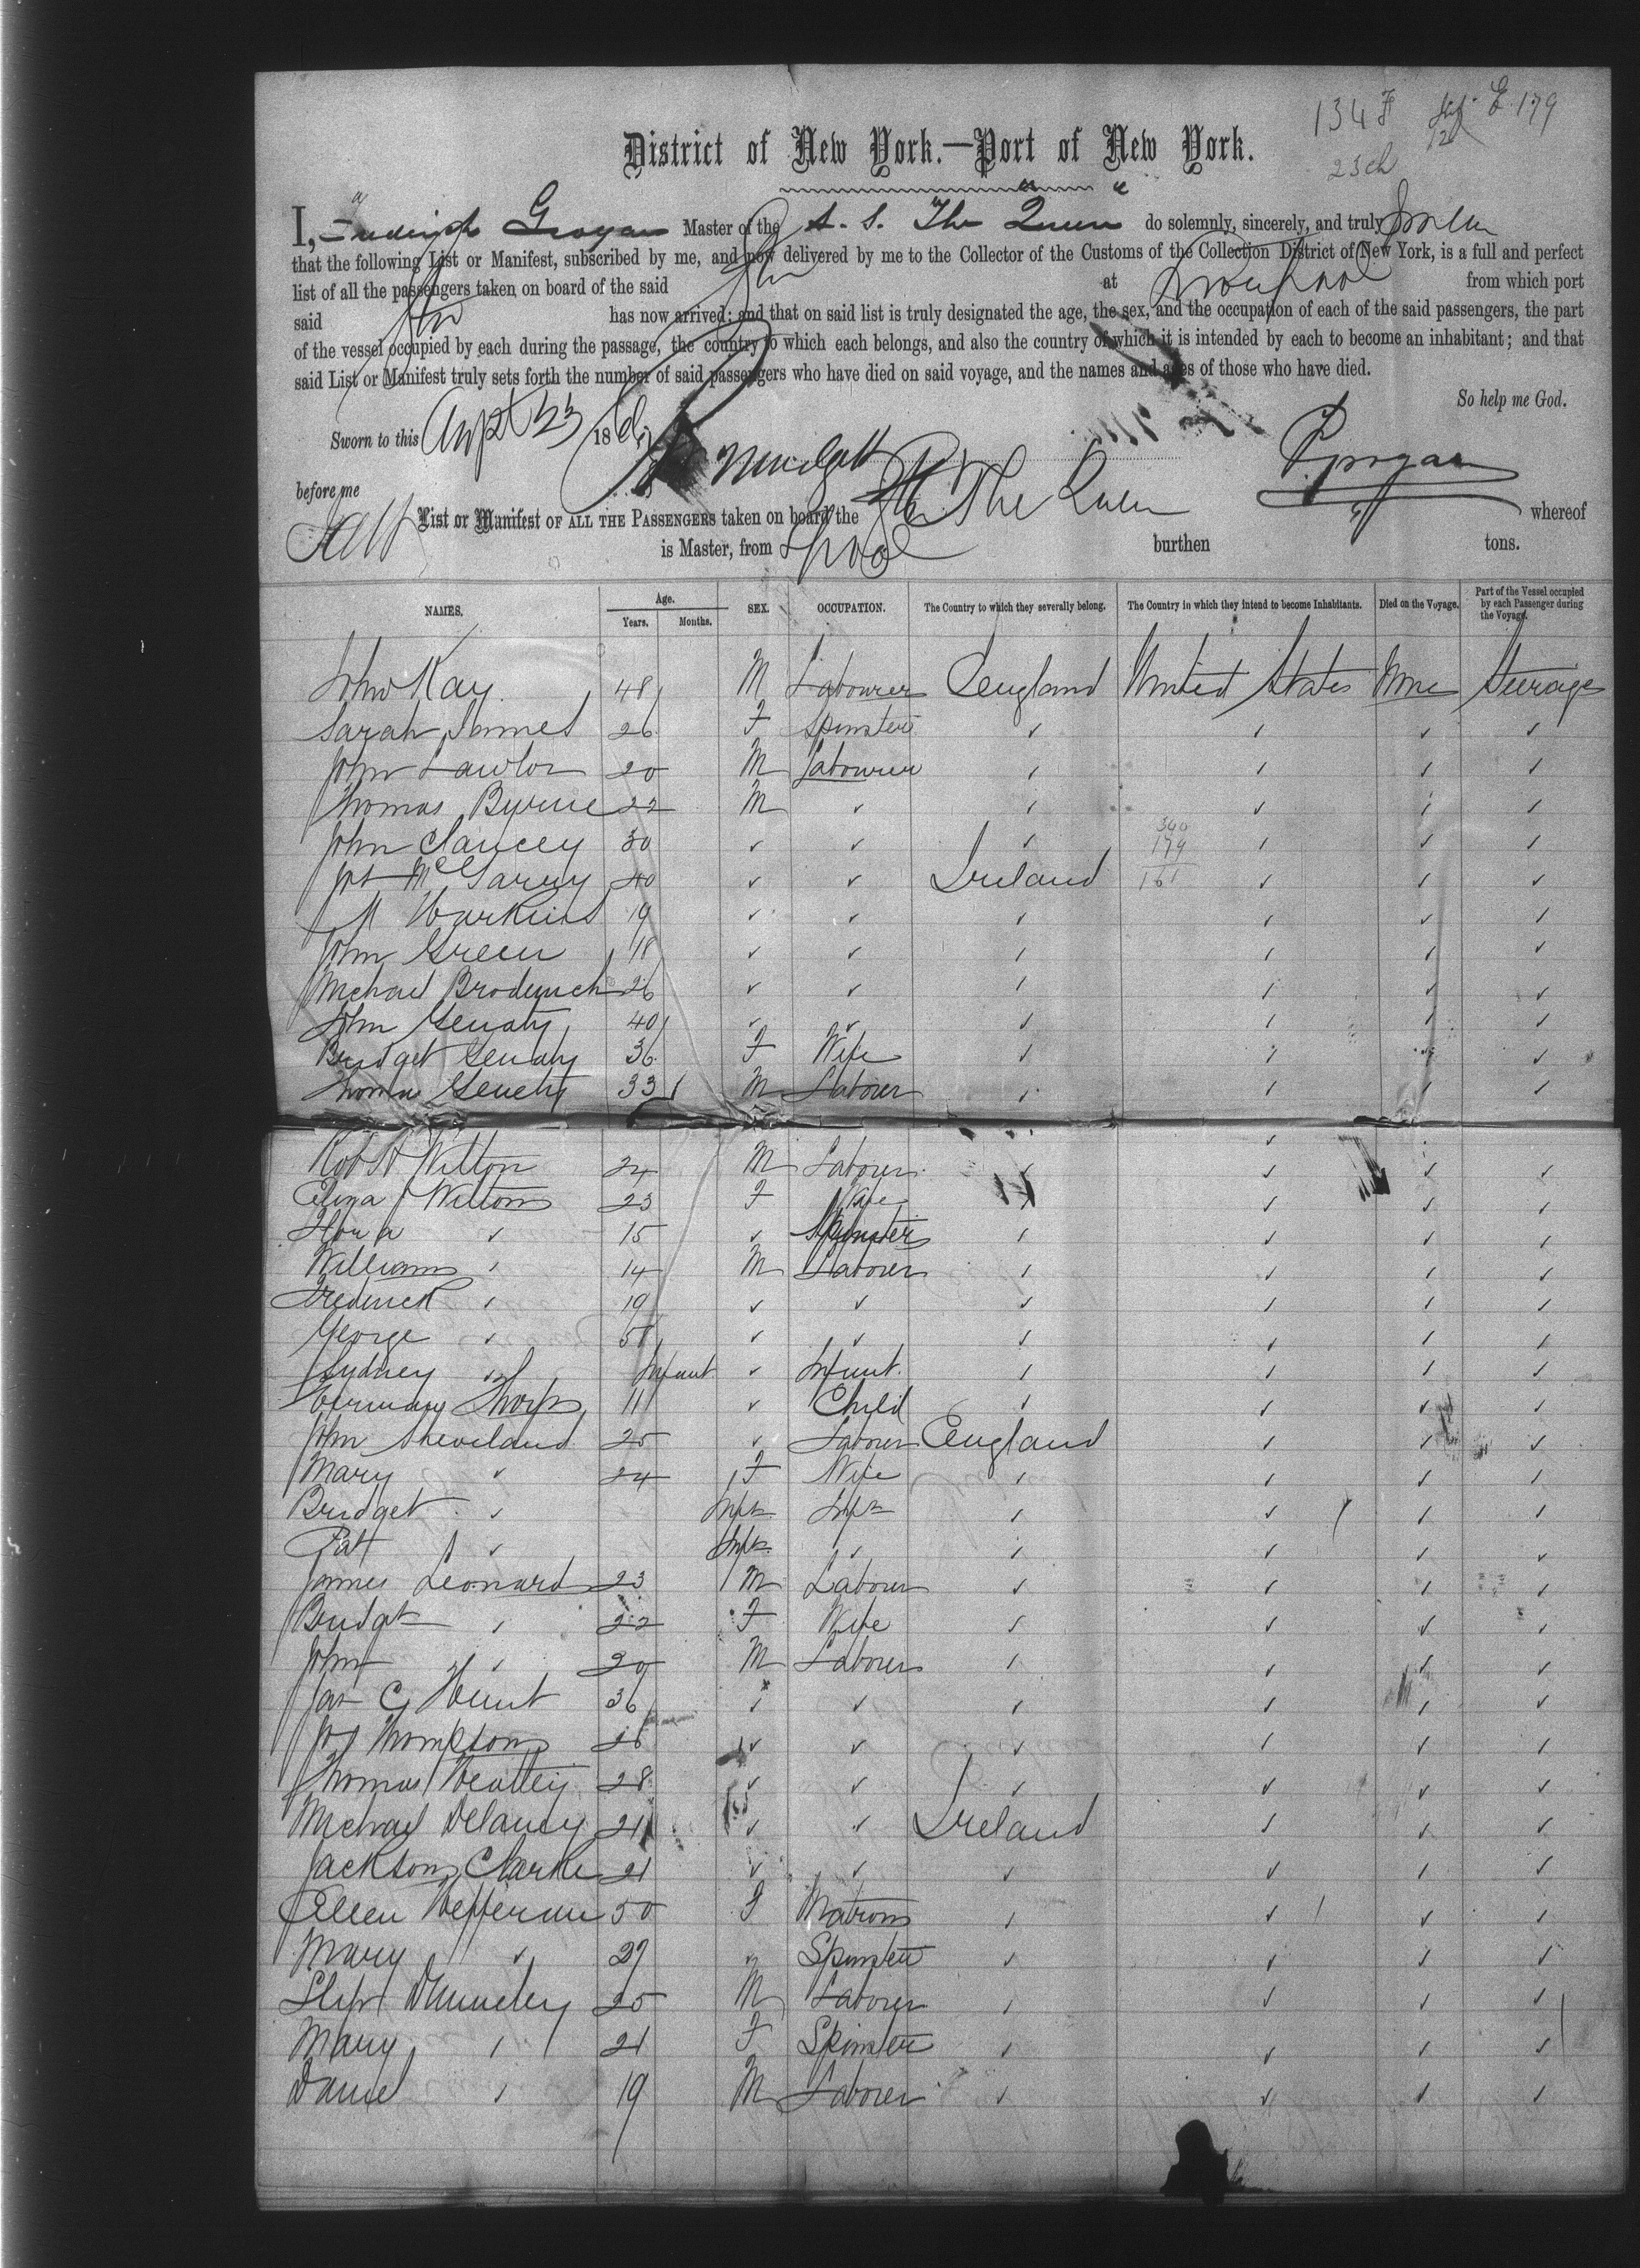 134 F
E. 179
23 ch
District of New York.—Port of New York.
I, Frederick Grogan Master of the S. S. "The Queen" do solemnly, sincerely, and truly swear
that the following List or Manifest, subscribed by me, and now delivered by me to the Collector of the Customs of the Collection District of New York, is a full and perfect
list of all the passengers taken on board of the said Str at Liverpool from which port
said Str has now arrived; and that on said list is truly designated the age, the sex, and the occupation of each of the said passengers, the part
of the vessel occupied by each during the passage, the country to which each belongs, and also the country of which it is intended by each to become an inhabitant; and that
said List or Manifest truly sets forth the number of said passengers who have died on said voyage, and the names and ages of those who have died.
So help me God.
Sworn to this 23 18
before me
FGrogan
List or Manifest OF ALL THE PASSENGERS taken on board the Str The Queen whereof
is Master, from Lpool burthen tons.
NAMES. Age. Years. Months. SEX. OCCUPATION. The Country to which they severally belong. The Country in which they intend to become Inhabitants. Died on the Voyage. Part of the Vessel occupied by each Passenger during the Voyage.
John Kay 48 M Labourer England United States None Steerage
Sarah James 26 F Spinster ✓ ✓ ✓ ✓
John Lawlor 20 M Labourer ✓ ✓ ✓ ✓
Thomas Byrne 22 M ✓ ✓ ✓ ✓ ✓
340
John Clancey 30 ✓ ✓ ✓ 179 ✓ ✓ ✓
McGarry 40 ✓ ✓ Ireland 161 ✓ ✓ ✓
Harkins 19 ✓ ✓ ✓ ✓ ✓ ✓
John Green 18 ✓ ✓ ✓ ✓ ✓ ✓
Michael Broderick 26 ✓ ✓ ✓ ✓ ✓ ✓
John Geraty 40 ✓ ✓ ✓ ✓ ✓ ✓
Bridget Geraty 36 F Wife ✓ ✓ ✓ ✓
Thomas 33 M Labourer ✓ ✓ ✓ ✓
Wilton 24 M Labourer ✓ ✓ ✓ ✓
Eliza Wilton 23 F Wife ✓ ✓ ✓
✓ 15 ✓ Spinster ✓ ✓ ✓ ✓
William ✓ 14 M Labourer ✓ ✓ ✓ ✓
Frederick ✓ 19 ✓ ✓ ✓ ✓ ✓ ✓
George ✓ ✓ ✓ ✓ ✓ ✓ ✓
Sydney ✓ Infant ✓ Infant. ✓ ✓ ✓ ✓
Thorp 11 ✓ Child ✓ ✓ ✓ ✓
John 25 ✓ Labourer England ✓ ✓ ✓
Mary ✓ 24 F Wife ✓ ✓ ✓ ✓
Bridget ✓ Inft Inft ✓ ✓ ✓ ✓
Pat ✓ Inft ✓ ✓ ✓ ✓ ✓
James Leonard 23 M Labourer ✓ ✓ ✓ ✓
Bridget ✓ 22 F Wife ✓ ✓ ✓ ✓
John ✓ 20 M Labourer ✓ ✓ ✓ ✓
Jas C Hunt 36 ✓ ✓ ✓ ✓ ✓ ✓
Jos Thompson 26 ✓ ✓ ✓ ✓ ✓ ✓
Thomas 28 ✓ ✓ ✓ ✓ ✓ ✓
Michael Delaney 21 ✓ ✓ Ireland ✓ ✓ ✓
Jackson Clarke 21 ✓ ✓ ✓ ✓ ✓ ✓
Ellen Hefferan 50 F Matron ✓ ✓ ✓ ✓
Mary ✓ 27 ✓ Spinster ✓ ✓ ✓ ✓
25 M Labourer ✓ ✓ ✓ ✓
Mary ✓ 21 F Spinster ✓ ✓ ✓ ✓
Daniel ✓ 19 M Labourer ✓ ✓ ✓ ✓